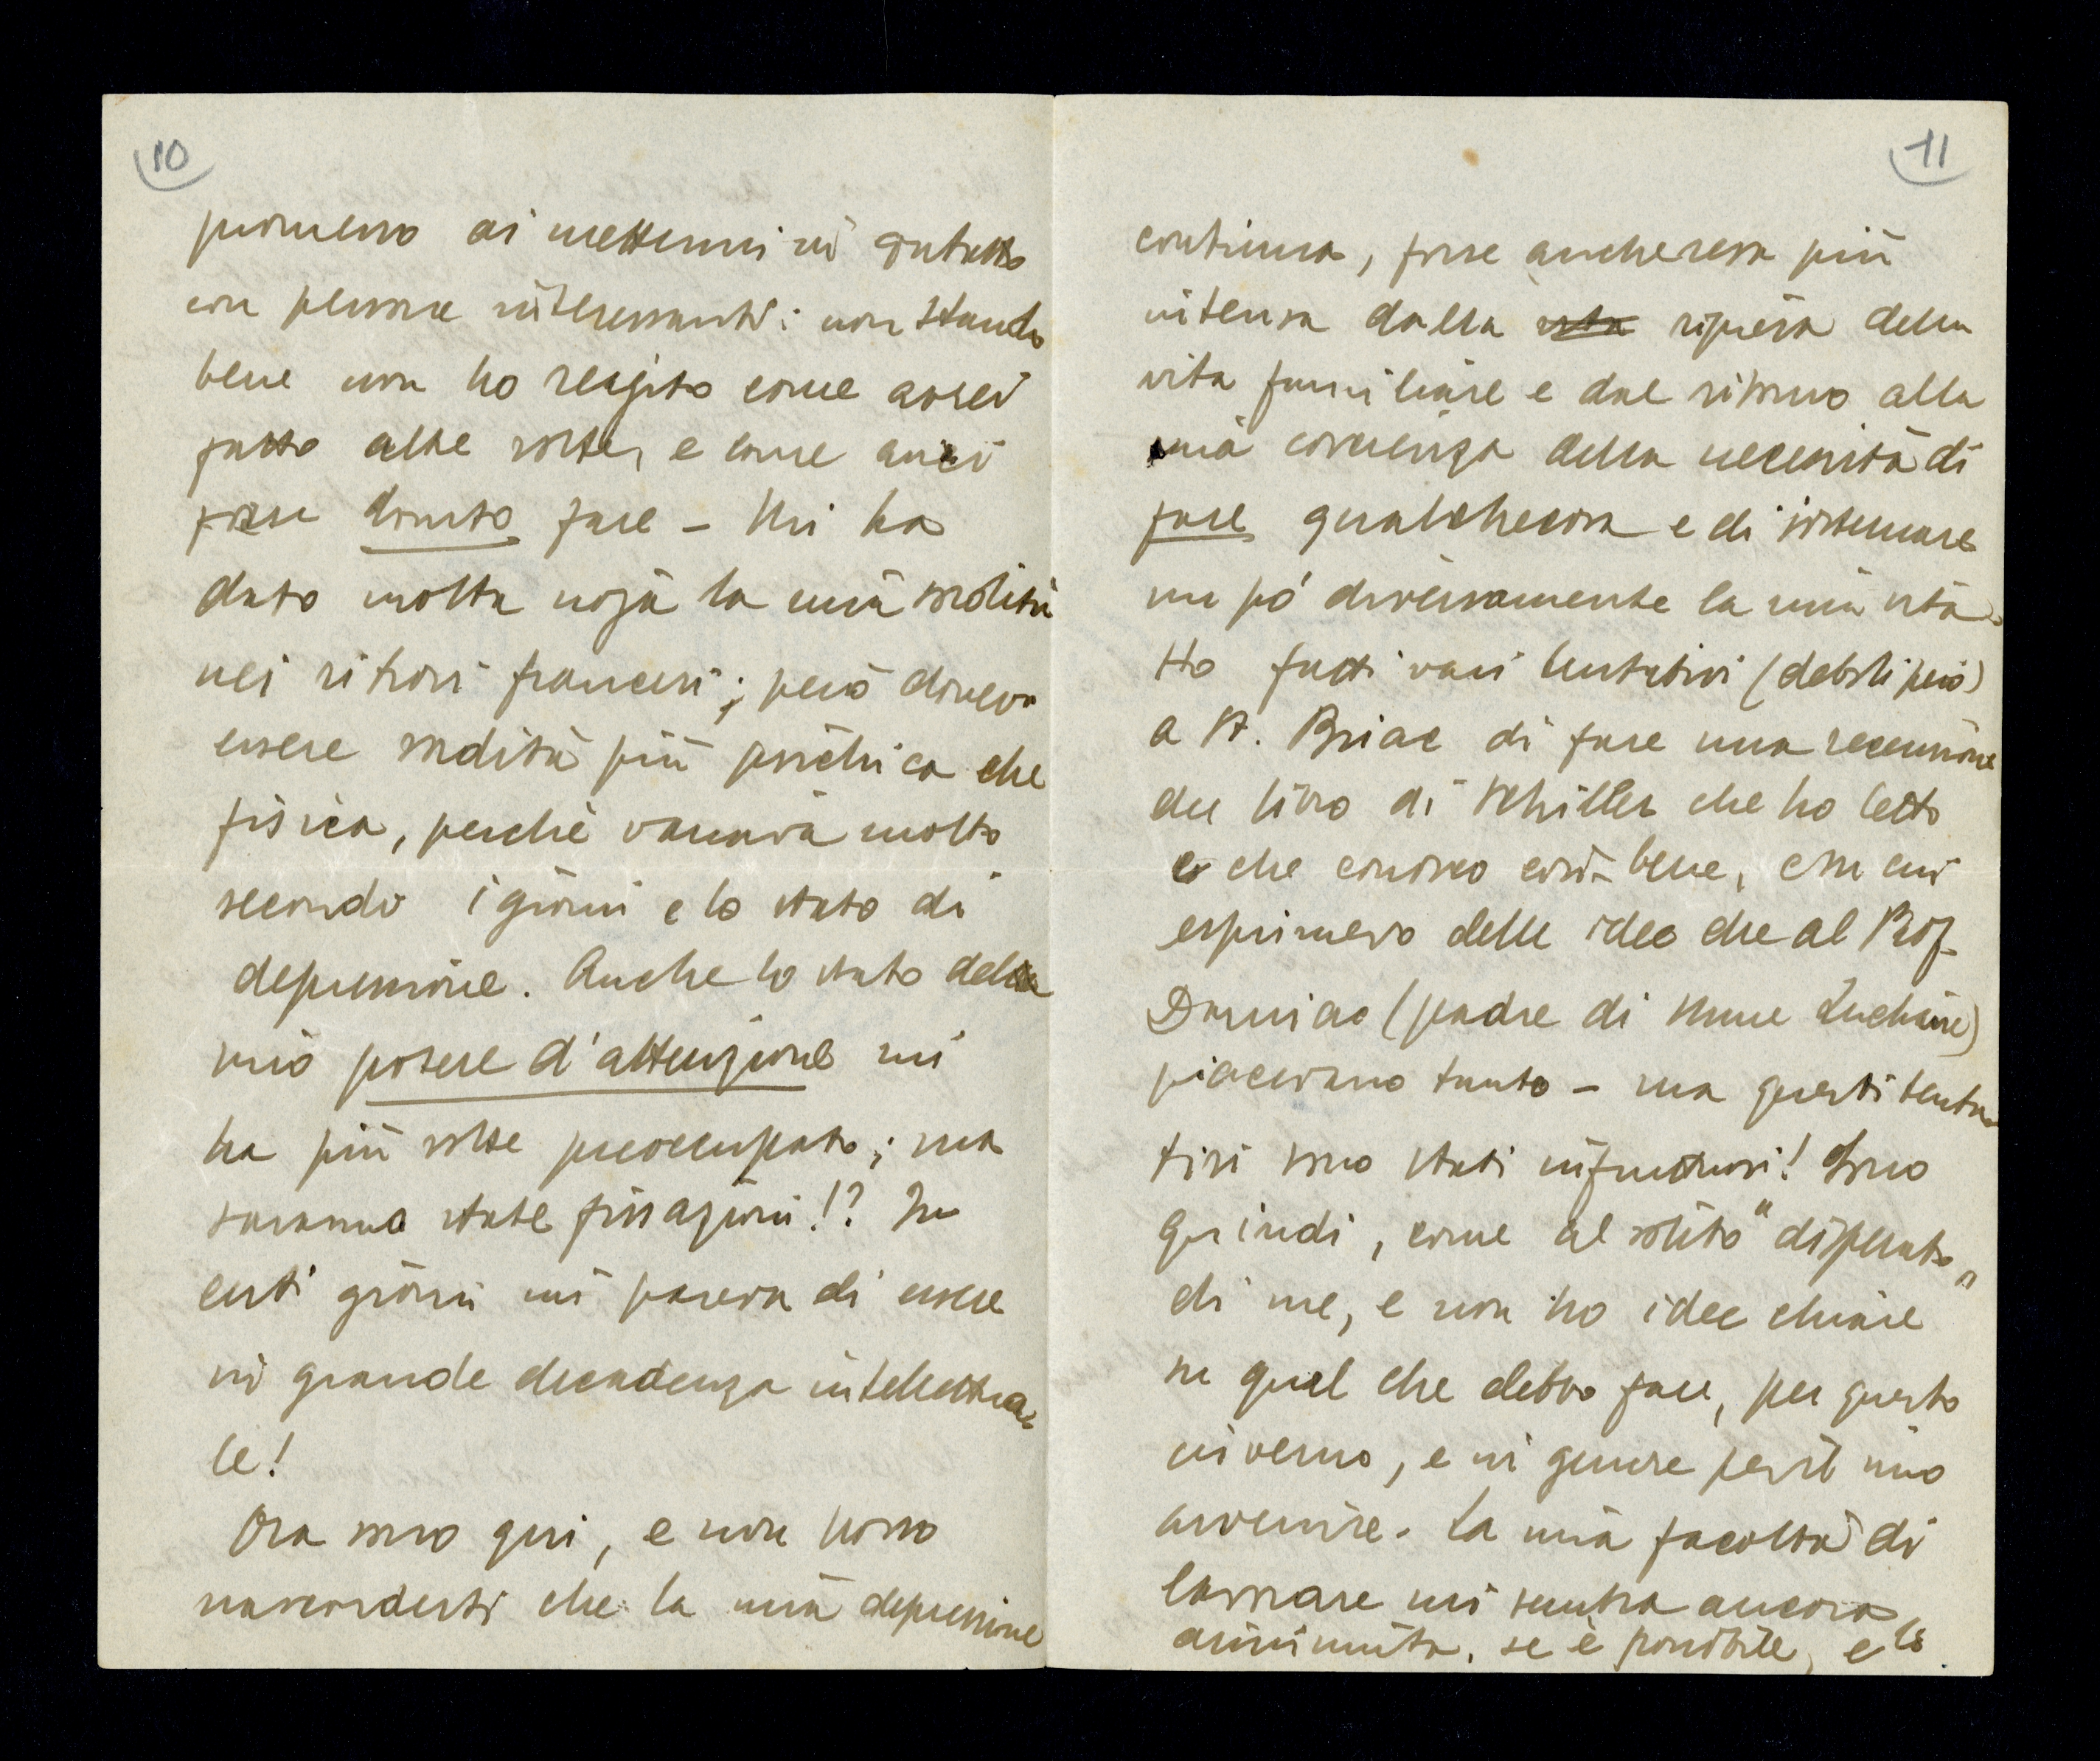 10
promesso di mettermi in contatto
con persone interessanti: non stando
bene non ho reagito come avrei
fatto altre volte, e come avrei
forse dovuto fare – Mi ha
dato molta noja la mia sordità
nei ritrovi francesi; però doveva
essere sordità più psichica che
fisica, perchè variava molto
secondo i giorni e lo stato di
depressione. Anche lo stato del
mio potere d'attenzione mi
ha più volte preoccupato; ma
saranno state fissazioni!? In
certi giorni mi pareva di essere
in grande decadenza intellettua-
le!
Ora sono qui, e non posso
nasconderti che la mia depressione
11
continua, forse anche resa più
intensa dalla vita ripresa della
vita famigliare e dal ritorno alla
mia coscienza della necessità di
fare qualchecosa e di sistemare
un pó diversamente la mia vita.
Ho fatti vari tentativi (deboli però)
a St. Briac di fare una recensione
del libro di Schiller che ho letto
e che conosco così bene, e su cui
esprimevo delle idee che al Prof
Dauriac (padre di Mme Luchaire)
piacevano tanto – ma questi tenta-
tivi sono stati infruttuosi! Sono
quindi, come al solito "disperato"
di me, e non ho idee chiare
su quel che debbo fare, per questo
inverno, e in genere per il mio
avvenire. La mia facoltà di
lavorare mi sembra ancora
diminuita, se è possibile, e lo